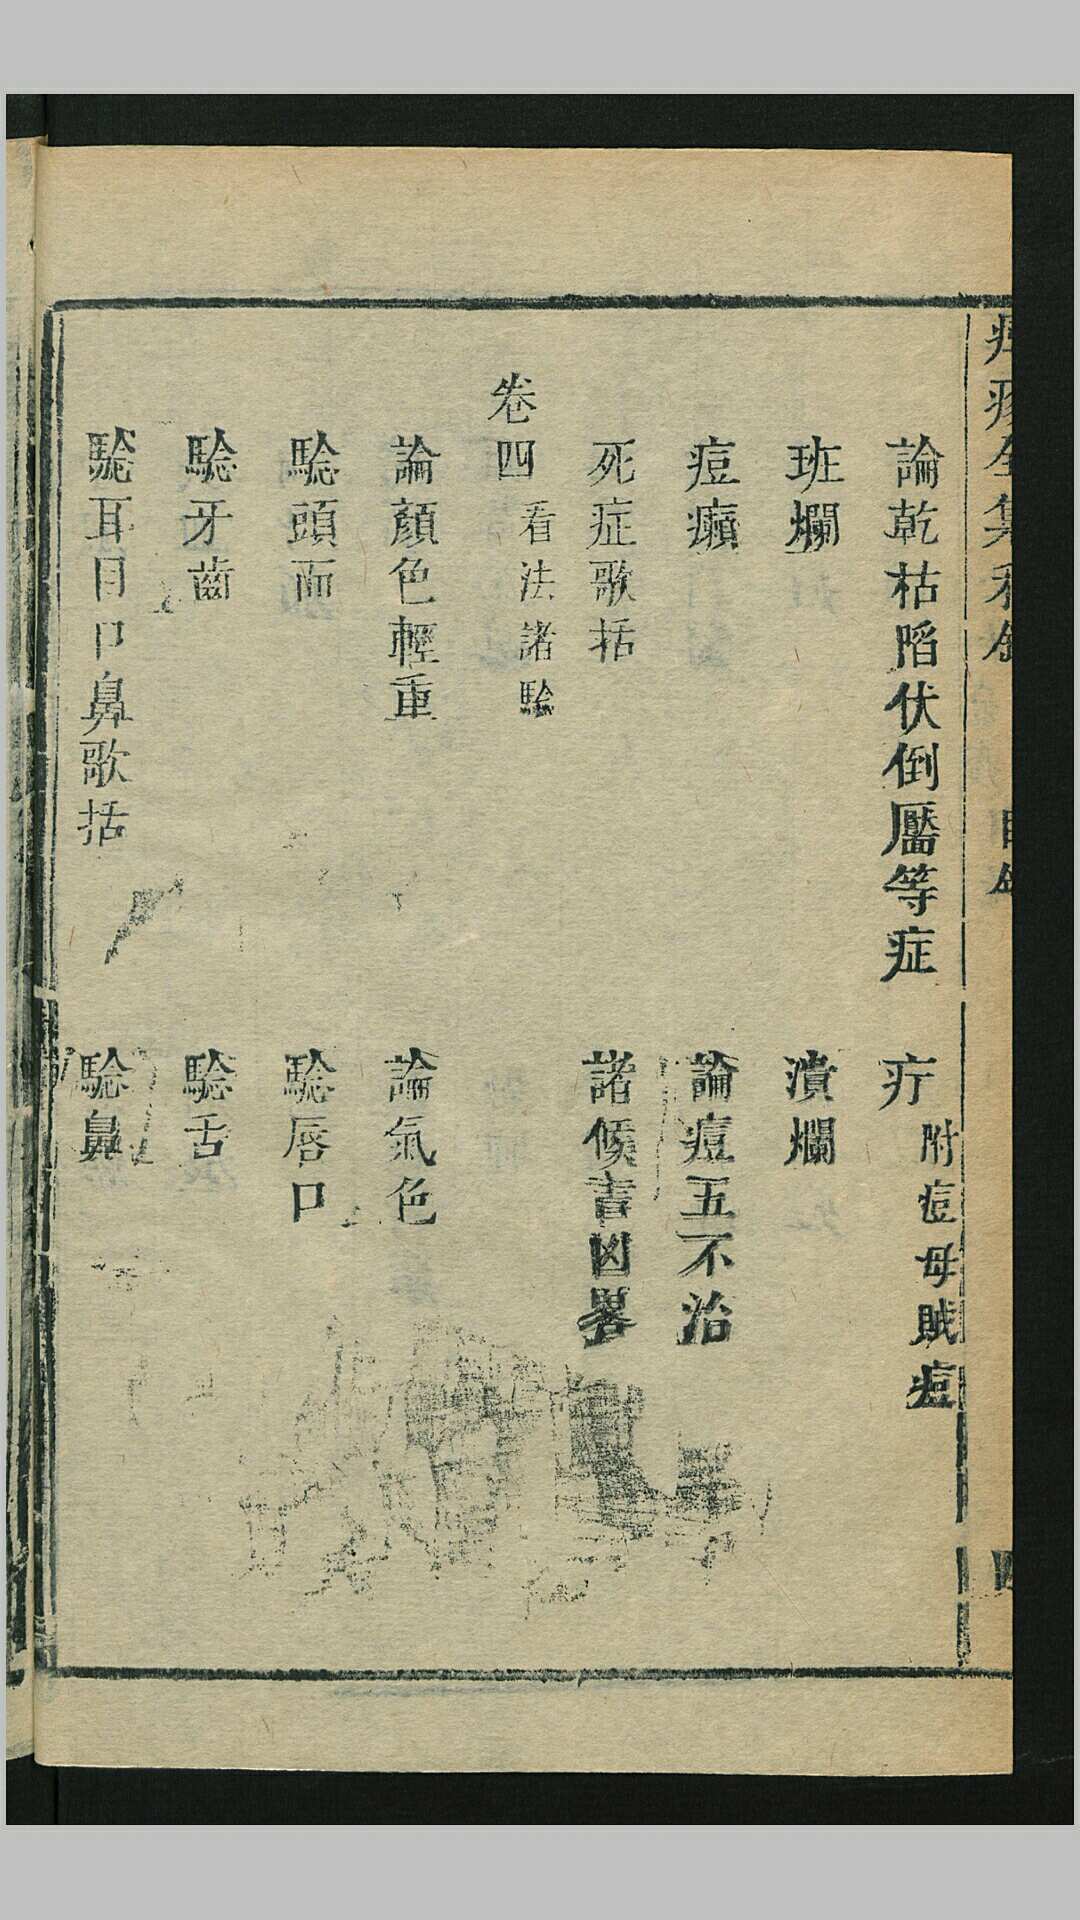 論乾枯陷伏倒靨等症 疔 附痘母賊痘
班爛 潰爛
痘癩 論痘五不治
死症歌括 諸候吉凶畧
卷四 看法諸騐
論顏色輕重 論氣色
騐頭面 騐唇口
騐牙齒 騐舌
騐耳目口鼻歌括 騐鼻